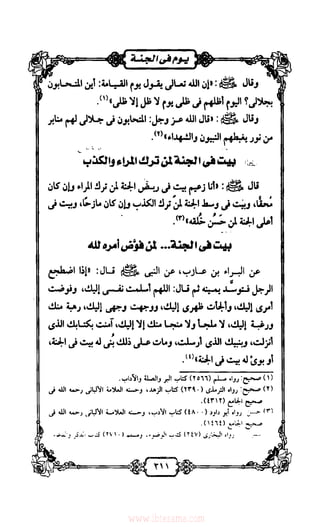 يوم فى الجنة
وقال ﷺ : «إن الله تعالى يقول يوم القيامة: أين المتحابون
بجلالى؟ اليوم أظلهم فى ظلى يوم لا ظل إلا ظلى»(١).
وقال ﷺ : «قال الله عز وجل: المتحابون فى جلالى لهم منابر
من نور يغبطهم النبيون والشهداء»(٢).
بيت فى الجنة لمن ترك المراء والكذب
قال ﷺ : «أنا زعيم بيت فى ربض الجنة لمن ترك المراء وإن كان
مُحقًا، وبيت فى وسط الجنة لمن ترك الكذب وإن كان مازحًا، وبيت فى
أعلى الجنة لمن حَسُن خُلقه»(٣).
بيت فى الجنة... لمن فوَّض أمره لله
عن البراء بن عازب، عن النبى ﷺ قال: «إذا اضطجع
الرجل فتوسَّد يمينه ثم قال: اللهم أسلمت نفسى إليك، وفوضت
أمرى إليك، وألجأت ظهرى إليك، ووجهت وجهى إليك، رهبة منك
ورغبة إليك، لا ملجأ ولا منجا منك إلا إليك، آمنت بكتابك الذى
أنزلت، وبنبيك الذى أرسلت، ومات على ذلك بُنى له بيت فى الجنة،
أو بوئ له بيت فى الجنة»(٤).
(١) صحيح: رواه مسلم (٢٥٦٦) كتاب البر والصلة والآداب.
(٢) صحيح: رواه الترمذى (٢٣٩٠) كتاب الزهد، وحسنه العلامة الألبانى رحمه الله فى
صحيح الجامع (٤٣١٢).
(٣) حسن: رواه أبو داود (٤٨٠٠) كتاب الأدب، وحسنه العلامة الألبانى رحمه الله فى
صحيح الجامع (١٤٦٤).
رواه البخارى (٢٤٧) كتاب الوضوء، ومسلم (٢٧١٠) كتاب الذكر والدعاء.
٣١١
www.ibtesama.com